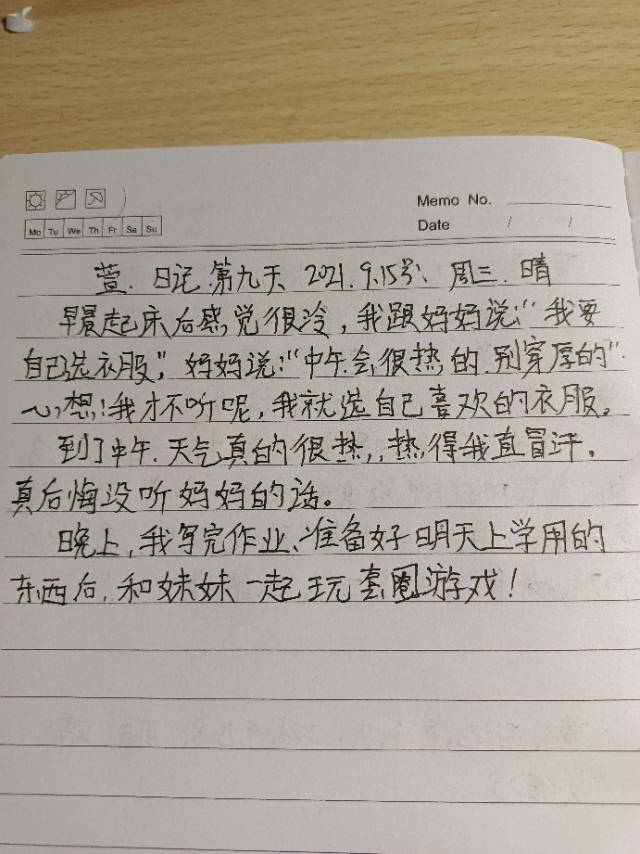 Memo No.
Mo Tu We Th Fr Sa Su
Date / /
萱. 日记.第九天 2021.9.15号、周三.晴
早晨起床后感觉很冷,我跟妈妈说:“我要
自己选衣服”,妈妈说:“中午会很热的.别穿厚的”.
心想!我才不听呢,我就选自己喜欢的衣服。
到了中午.天气真的很热,,热得我直冒汗.
真后悔没听妈妈的话。
晚上,我写完作业、准备好明天上学用的
东西后,和妹妹一起玩套圈游戏!